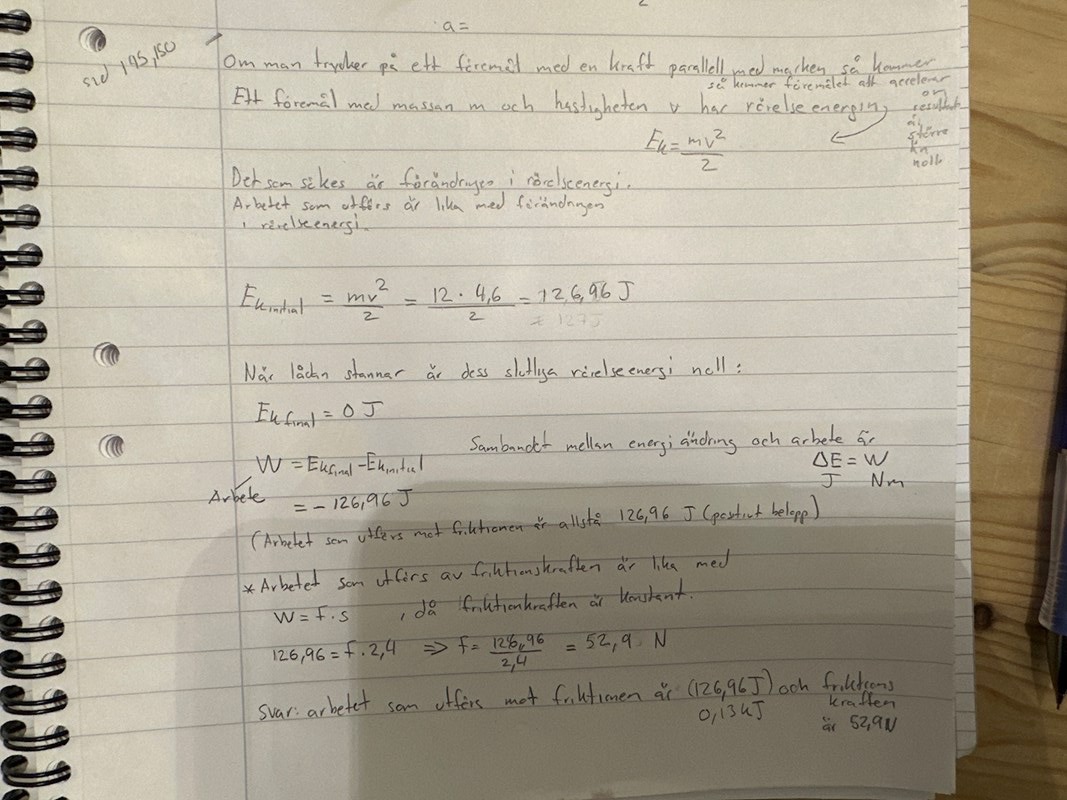 a=
sid 145,150
Om man trycker på ett föremål med en kraft parallell med marken så kommer
så kommer föremålet att accelerar
Ett föremål med massan m och hastigheten v har rörelseenergin,
om
resultat
är
större
än
noll
Ek = mv²/2
Det som sökes är förändringen i rörelseenergi.
Arbetet som utförs är lika med förändringen
i rörelseenergi.
Ek initial = mv²/2 = 12 · 4,6/2 = 126,96 J
≈ 127J
När lådan stannar är dess slutliga rörelseenergi noll:
Ek final = 0 J
Sambandet mellan energiändring och arbete är
W = Ek final - Ek initial
ΔE = W
J Nm
Arbete
= - 126,96 J
(Arbetet som utförs mot friktionen är alltså 126,96 J (positivt belopp)
* Arbetet som utförs av friktionskraften är lika med
W = f·s , då friktionkraften är konstant.
126,96 = f·2,4 ⇒ f = 126,96/2,4 = 52,9 N
Svar: arbetet som utförs mot friktionen är (126,96J) och friktions
kraften
0,13kJ
är 52,9N